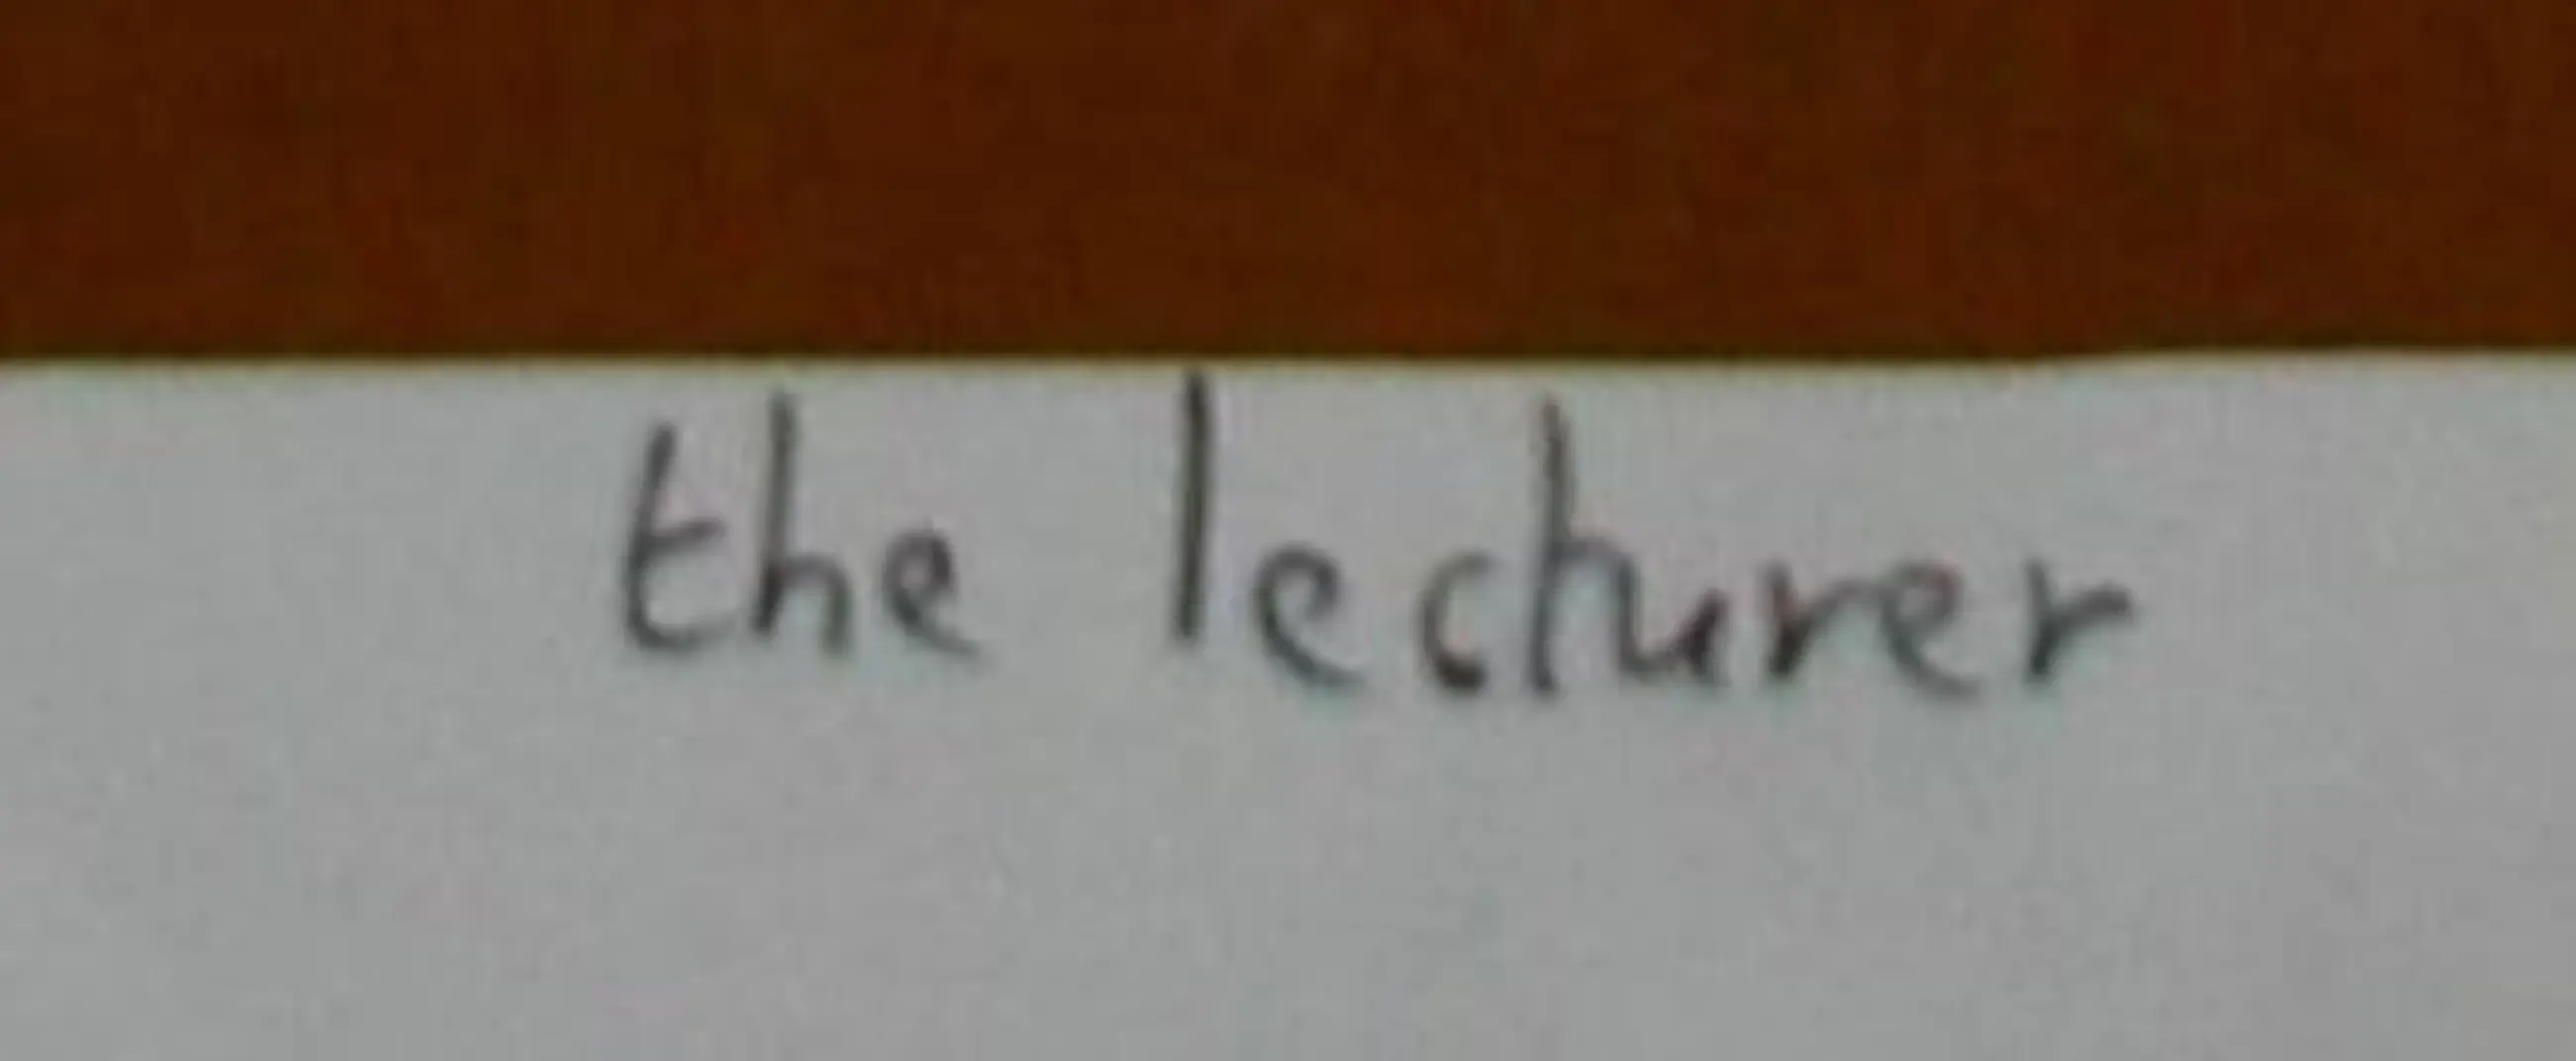 the lecturer